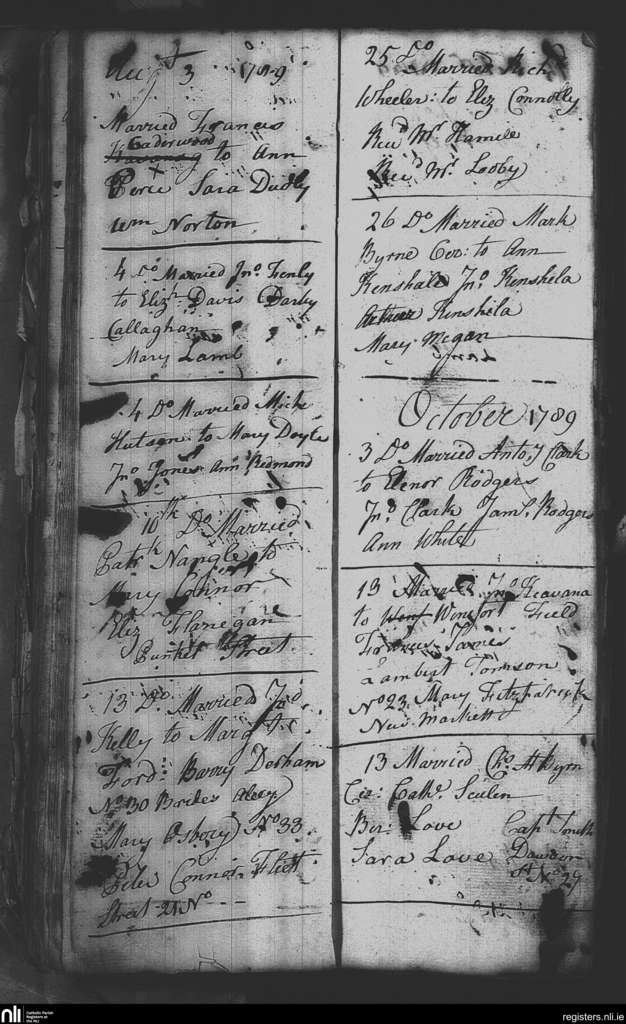 Aug 3 1789
Married Frances
Caderwood
to Ann
Peirce Sara Dudly
Wm Norton
4 Do Married Jno. Fenly
to Elizh. Davis Darby
Callaghan
Mary Lamb
4 Do Married Mich
Hutson to Mary Doyle
Jno Jones Ann Redmond
10th Do Married
Patrk Nangle to
Mary Connor
Eliz Flanegan
Punket Street
13 Do. Married Jno
Kelly to Margt.
Ford: Barry Derham
No 30 Brides Aleey
Mary Osbory No 33
Peter Connor Fleet
Street 21 No
25 Do Married Rich
Wheeler: to Eliz Connolly
Revd Mr. Hamile
Revd Mr. Looby
26 Do Married Mark
Byrne Cer: to Ann
Kenshala Jno. Kenshela
Arthur Kenshila
Mary Megan
October 1789
3 Do Married Antoy Clark
to Elenor Rodgers
Jno Clark Jams. Rodgers
Ann White
13 Married Jno Keavana
to Winefort Field
Frances James
Lambert Tomison
No 23 Mary Fitzpatrick
New Markett
13 Married Chs. A Byrn
Cer: Cathe. Sculen
Ber: Love Capt Smith
Sara Love Dawson
St No 29
nli
Catholic Parish
Registers at
the NLI
registers.nli.ie